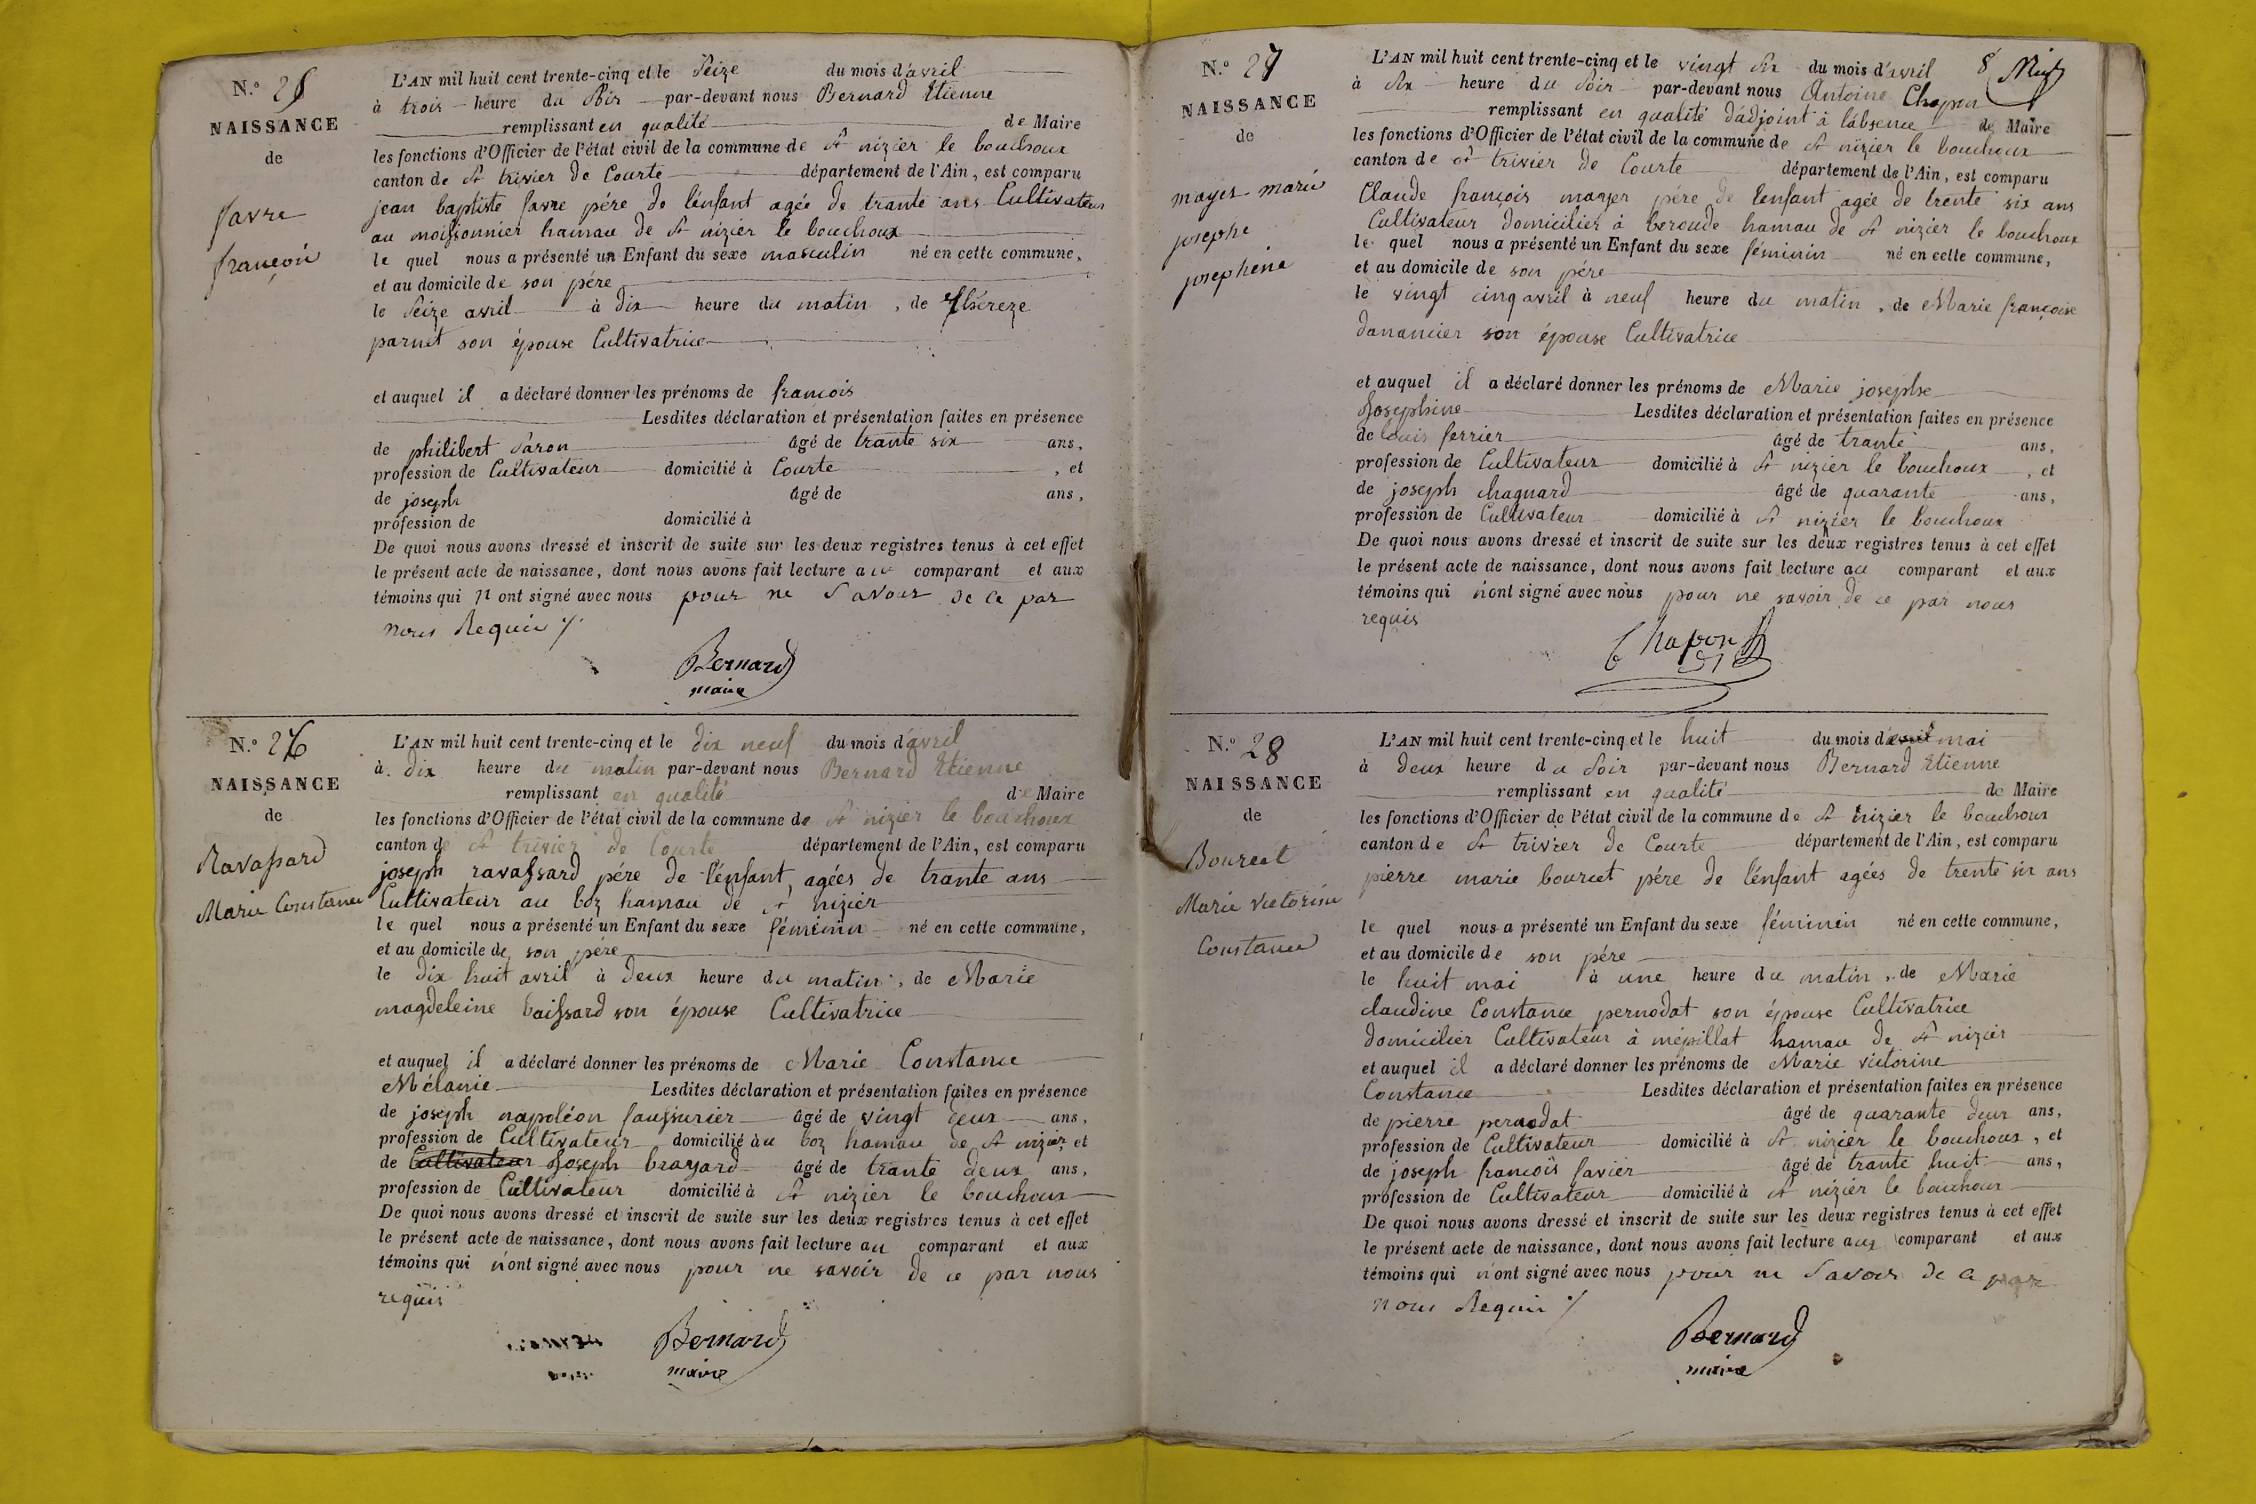 N.º 25
NAISSANCE
de
favre
françois
L'AN mil huit cent trente-cinq et le Seize du mois d'avril
à trois heure du Soir par-devant nous Bernard Etienne
remplissant en qualité de Maire
les fonctions d'Officier de l'état civil de la commune de St nizier le bouchoux
canton de St trivier de Courte département de l'Ain, est comparu
jean baptiste favre pére de l'énfant agée de trante ans Cultivateur
au moissonnier hamau de St nizier le bouchoux
le quel nous a présenté un Enfant du sexe masculin né en cette commune,
et au domicile de son pére
le Seize avril à dix heure du matin, de théreze
parnet son épouse Cultivatrice
et auquel il a déclaré donner les prénoms de francois
Lesdites déclaration et présentation faites en présence
de philibert Paron âgé de trante six ans,
profession de Cultivateur domicilié à Courte, et
de joseph âgé de ans,
profession de domicilié à
De quoi nous avons dressé et inscrit de suite sur les deux registres tenus à cet effet
le présent acte de naissance, dont nous avons fait lecture au comparant et aux
témoins qui n ont signé avec nous pour ne Savoir de ce par
nous Requis
Bernard
maire
N.º 26
NAISSANCE
de
Ravassard
Marie Constance
L'AN mil huit cent trente-cinq et le dix neuf du mois d'avril
à dix heure du matin par-devant nous Bernard Etienne
remplissant en qualité de Maire
les fonctions d'Officier de l'état civil de la commune de St nizier le bouchoux
canton de St trivier de Courte département de l'Ain, est comparu
joseph ravassard pére de l'énfant, agées de trante ans
Cultivateur au boz hamau de St nizier
le quel nous a présenté un Enfant du sexe féminin né en cette commune,
et au domicile de son pére
le dix huit avril à deux heure du matin, de Marie
magdeleine vaissard son épouse Cultivatrice
et auquel il a déclaré donner les prénoms de Marie Constance
Mélanie Lesdites déclaration et présentation faites en présence
de joseph napoléon âgé de vingt deux ans,
profession de Cultivateur domicilié au boz hamau de St nizier et
de Cultivateur Joseph brayard âgé de trante deux ans,
profession de Cultivateur domicilié à St nizier le bouchoux
De quoi nous avons dressé et inscrit de suite sur les deux registres tenus à cet effet
le présent acte de naissance, dont nous avons fait lecture au comparant et aux
témoins qui n'ont signé avec nous pour ne savoir de ce par nous
requis
Bernard
maire
N.º 27
NAISSANCE
de
mayer marie
josephe
josephine
L'AN mil huit cent trente-cinq et le vingt six du mois d'avril 8
à six heure du Soir par-devant nous Antoine Chapon
remplissant en qualité d'adjoint à l'absence de Maire
les fonctions d'Officier de l'état civil de la commune de St nizier le bouchoux
canton de St trivier de Courte département de l'Ain, est comparu
Claude françois mayer pére de l'enfant agée de trente six ans
Cultivateur domicilier à beroude hamau de St nizier le bouchoux
le quel nous a présenté un Enfant du sexe féminin né en cette commune,
et au domicile de son pére
le vingt cinq avril à neuf heure du matin, de Marie françoise
danancier son épouse Cultivatrice
et auquel il a déclaré donner les prénoms de Marie josephe
Josephine Lesdites déclaration et présentation faites en présence
de louis ferrier âgé de trante ans,
profession de Cultivateur domicilié à St nizier le bouchoux, et
de joseph chagnard âgé de quarante ans,
profession de Cultivateur domicilié à St nizier le bouchoux
De quoi nous avons dressé et inscrit de suite sur les deux registres tenus à cet effet
le présent acte de naissance, dont nous avons fait lecture au comparant et aux
témoins qui n'ont signé avec nous pour ne savoir de ce par nous
requis
Chapon
N.º 28
NAISSANCE
de
Bourcet
Marie Victorine
Constance
L'AN mil huit cent trente-cinq et le huit du mois d'avril mai
à deux heure du Soir par-devant nous Bernard Etienne
remplissant en qualité de Maire
les fonctions d'Officier de l'état civil de la commune de St nizier le bouchoux
canton de St trivier de Courte département de l'Ain, est comparu
pierre marie bourcet pére de l'énfant agées de trente six ans
le quel nous a présenté un Enfant du sexe féminin né en cette commune,
et au domicile de son pére
le huit mai à une heure du matin, de Marie
claudine Constance pernodat son épouse Cultivatrice
domicilier Cultivateur à mépillat hamau de St nizier
et auquel il a déclaré donner les prénoms de Marie victorine
Constance Lesdites déclaration et présentation faites en présence
de pierre pernodat âgé de quarante deux ans,
profession de Cultivateur domicilié à St nizier le bouchoux, et
de joseph francois favier âgé de trante huit ans,
profession de Cultivateur domicilié à St nizier le bouchoux
De quoi nous avons dressé et inscrit de suite sur les deux registres tenus à cet effet
le présent acte de naissance, dont nous avons fait lecture aux comparant et aux
témoins qui n'ont signé avec nous pour ne Savoir de ce par
nous Requis
Bernard
maire